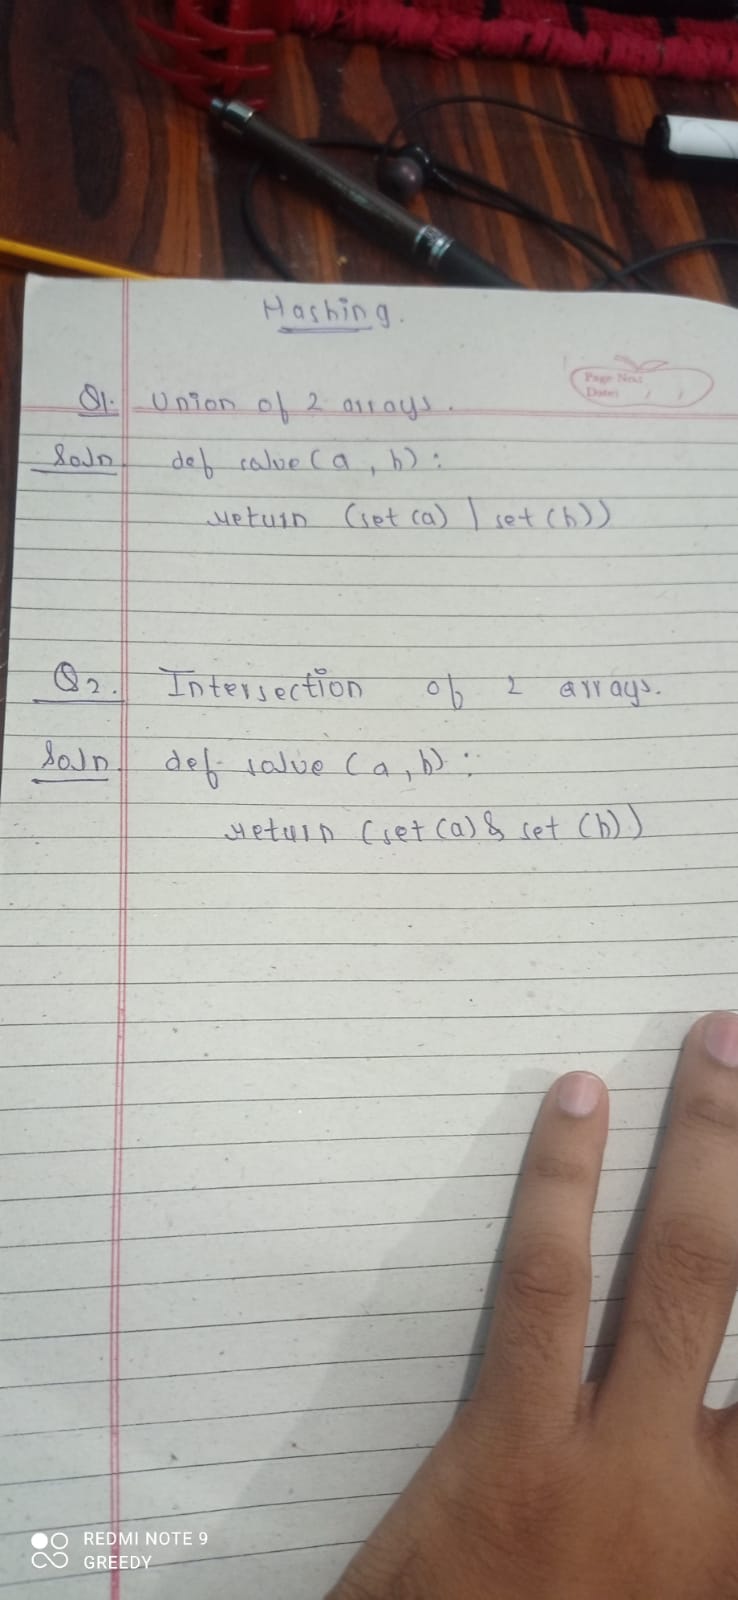 Hashing.
Page No:
Date: / /
Q1. Union of 2 arrays.
Soln def solve (a, b):
return (set (a) | set (b))
Q2. Intersection of 2 arrays.
Soln def solve (a, b):
return (set (a) & set (b))
REDMI NOTE 9
GREEDY